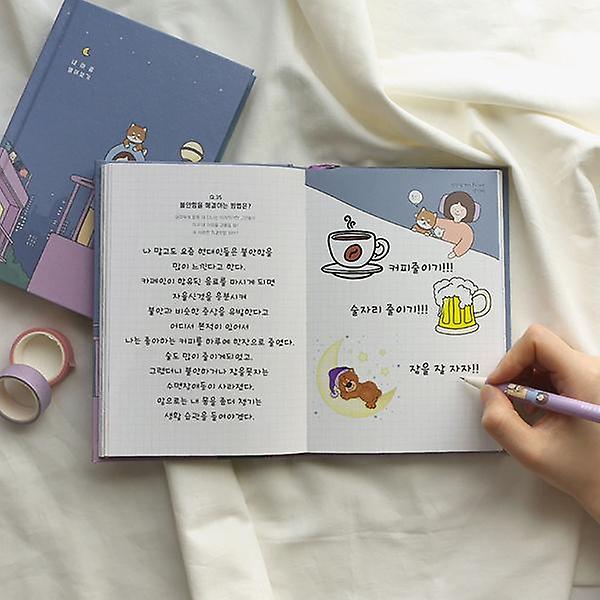 내 마음
열어보기
Q.35
불안함을 해결하는 방법은?
나 말고도 요즘 현대인들은 불안함을
많이 느낀다고 한다.
카페인이 함유된 음료를 마시게 되면
자율신경을 흥분시켜
불안과 비슷한 증상을 유발한다고
어디서 본적이 있어서
나는 좋아하는 커피를 하루에 한잔으로 줄였다.
술도 많이 줄이게되었고,
그랬더니 불안하거나 잠을못자는
수면장애등이 사라졌다.
앞으로는 내 몸을 좀더 챙기는
생활 습관을 들여야겠다.
커피줄이기!!!
술자리 줄이기!!!
잠을 잘 자자!!